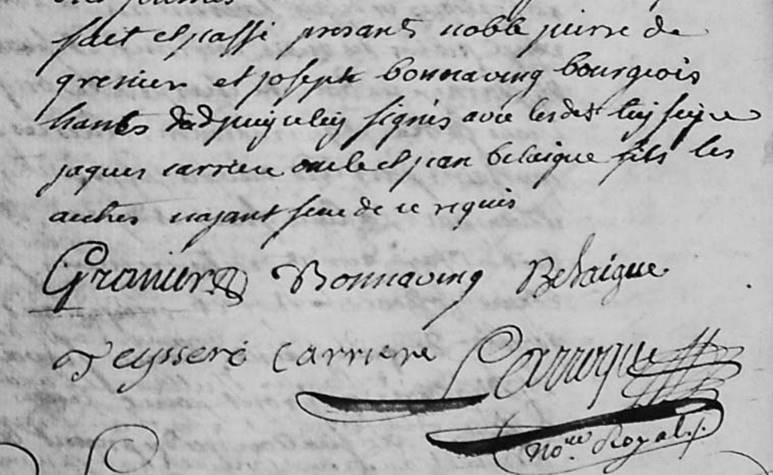 fait et passé presant noble pierre de
grenier et joseph bonnaving bourgeois
habts dud puycelcy signés avec lesdts teyseyre
jaques carriere oncle et jean belaigue fils les
autres nayant sceu de ce requis
Graniers Bonnaving Belaigue
Teysseré Carriere Carroque
nore Royal